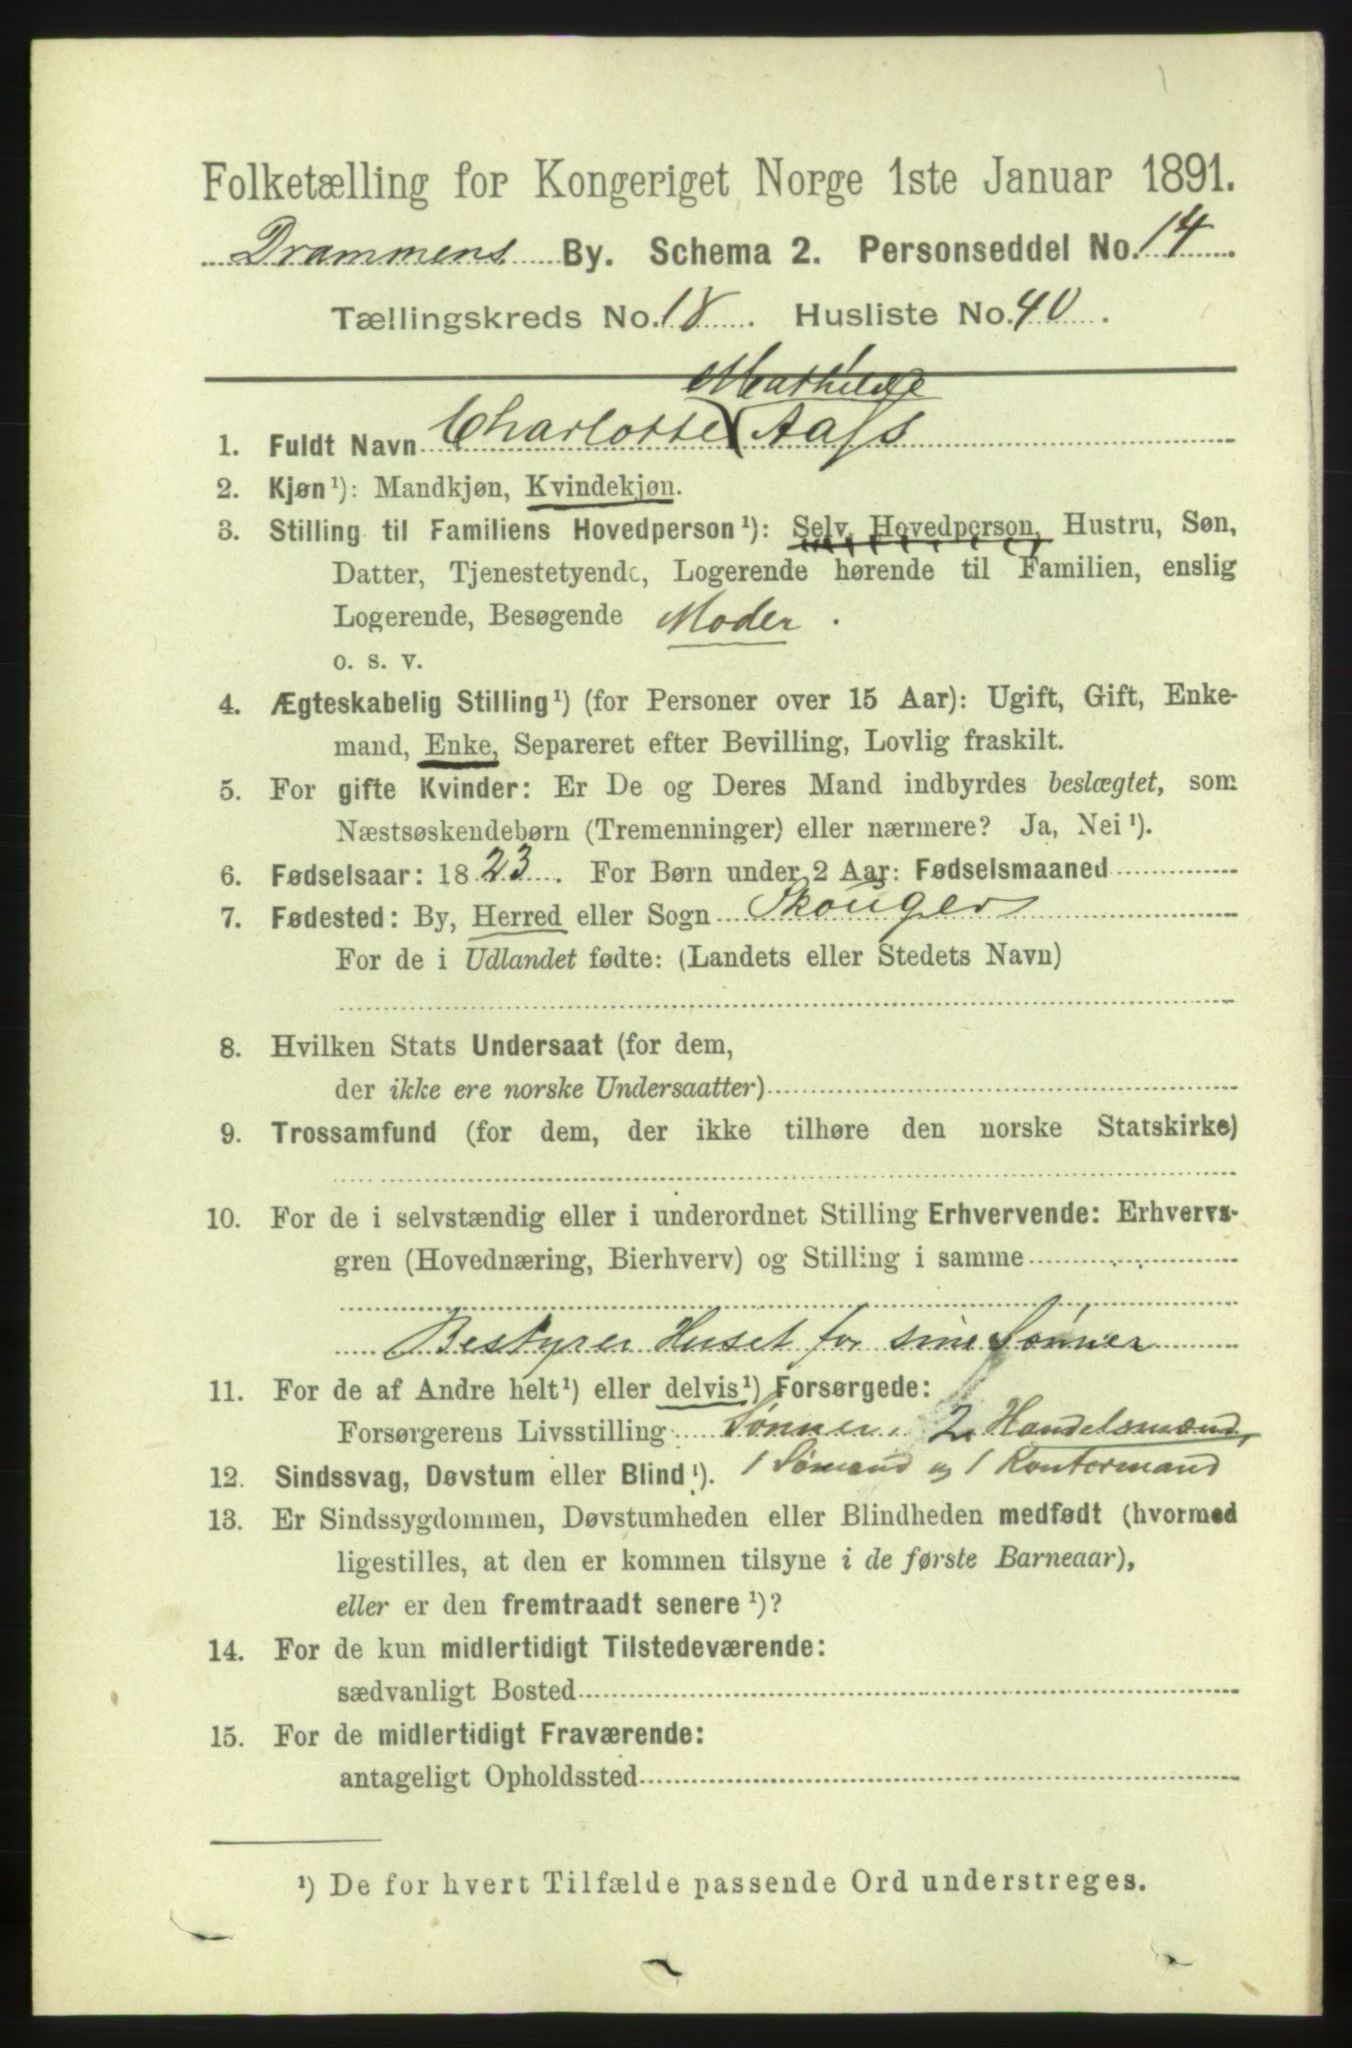 Folketælling for Kongeriget Norge 1ste Januar 1891.
Drammens By. Schema 2. Personseddel No. 14.
Tællingskreds No. 18. Husliste No. 40.
Mathilde
1. Fuldt Navn Charlotte Aass
2. Kjøn¹): Mandkjøn, Kvindekjøn.
3. Stilling til Familiens Hovedperson¹): Selv Hovedperson, Hustru, Søn,
Datter, Tjenestetyende, Logerende hørende til Familien, enslig
Logerende, Besøgende Moder.
o. s. v.
4. Ægteskabelig Stilling¹) (for Personer over 15 Aar): Ugift, Gift, Enke-
mand, Enke, Separeret efter Bevilling, Lovlig fraskilt.
5. For gifte Kvinder: Er De og Deres Mand indbyrdes beslægtet, som
Næstsøskendebørn (Tremenninger) eller nærmere? Ja, Nei¹).
6. Fødselsaar: 1823. For Børn under 2 Aar: Fødselsmaaned
7. Fødested: By, Herred eller Sogn Skouger
For de i Udlandet fødte: (Landets eller Stedets Navn)
8. Hvilken Stats Undersaat (for dem,
der ikke ere norske Undersaatter)
9. Trossamfund (for dem, der ikke tilhøre den norske Statskirke)
10. For de i selvstændig eller i underordnet Stilling Erhvervende: Erhvervs-
gren (Hovednæring, Bierhverv) og Stilling i samme
Bestyrer Huset for sine Sønner
11. For de af Andre helt¹) eller delvis¹) Forsørgede:
Forsørgerens Livsstilling Sønner. 2 Handelsmænd,
1 Sømand og 1 Kontormand
12. Sindssvag, Døvstum eller Blind¹).
13. Er Sindssygdommen, Døvstumheden eller Blindheden medfødt (hvormed
ligestilles, at den er kommen tilsyne i de første Barneaar),
eller er den fremtraadt senere¹)?
14. For de kun midlertidigt Tilstedeværende:
sædvanligt Bosted
15. For de midlertidigt Fraværende:
antageligt Opholdssted
¹) De for hvert Tilfælde passende Ord understreges.